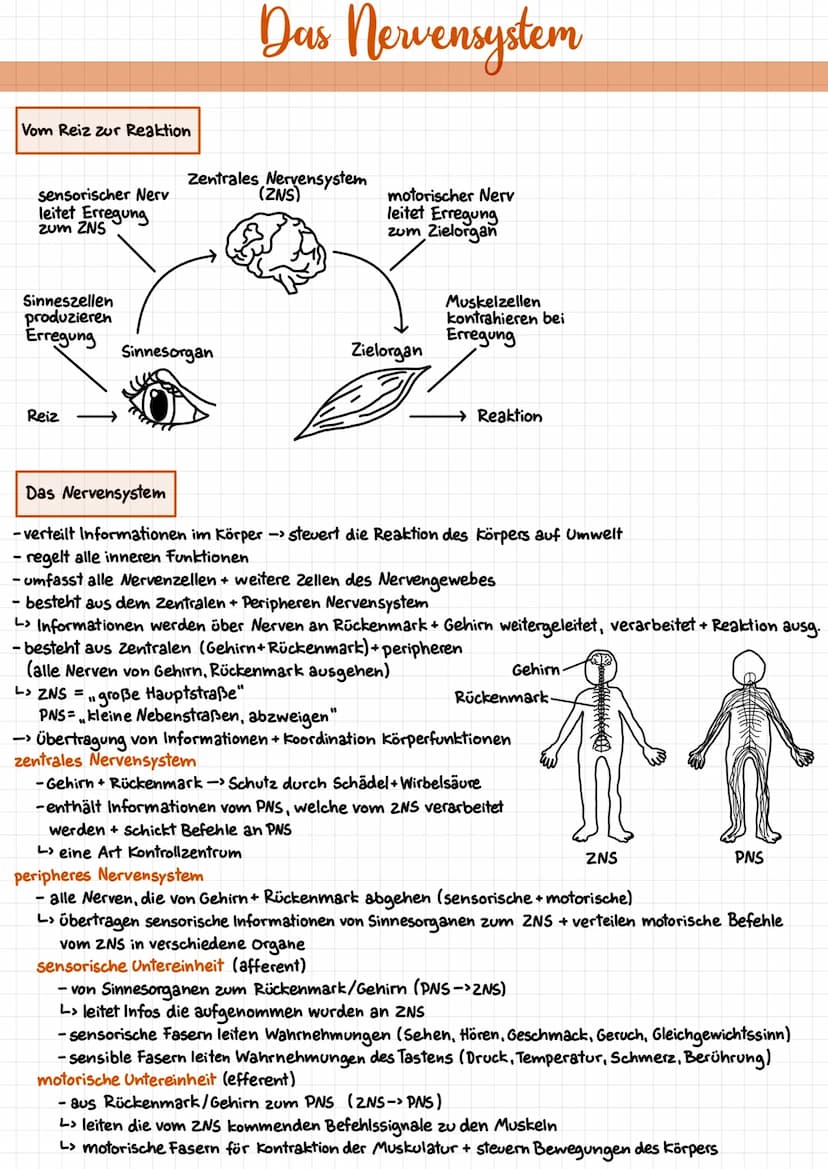 Das Nervensystem
Vom Reiz zur Reaktion
Zentrales Nervensystem
(ZNS)
sensorischer Nerv
leitet Erregung
zum ZNS
motorischer Nerv
leitet Erregung
zum Zielorgan
Sinneszellen
produzieren
Erregung
Muskelzellen
kontrahieren bei
Erregung
Sinnesorgan
Zielorgan
Reiz
Reaktion
Das Nervensystem
- verteilt Informationen im Körper -> steuert die Reaktion des Körpers auf Umwelt
- regelt alle inneren Funktionen
- umfasst alle Nervenzellen + weitere Zellen des Nervengewebes
- besteht aus dem Zentralen + Peripheren Nervensystem
↳ Informationen werden über Nerven an Rückenmark + Gehirn weitergeleitet, verarbeitet + Reaktion ausg.
- besteht aus Zentralen (Gehirn+Rückenmark)+peripheren
(alle Nerven von Gehirn, Rückenmark ausgehen)
↳ ZNS = „große Hauptstraße"
PNS= „kleine Nebenstraßen, abzweigen"
-> Übertragung von Informationen + Koordination Körperfunktionen
Gehirn
Rückenmark
ZNS
PNS
zentrales Nervensystem
- Gehirn + Rückenmark -> Schutz durch Schädel + Wirbelsäure
- enthält Informationen vom PNS, welche vom ZNS verarbeitet
werden + schickt Befehle an PNS
↳ eine Art Kontrollzentrum
peripheres Nervensystem
- alle Nerven, die von Gehirn+ Rückenmark abgehen (sensorische + motorische)
↳ übertragen sensorische Informationen von Sinnesorganen zum ZNS + verteilen motorische Befehle
vom ZNS in verschiedene Organe
sensorische Untereinheit (afferent)
- von Sinnesorganen zum Rückenmark/Gehirn (PNS->ZNS)
↳ leitet Infos die aufgenommen wurden an ZNS
- sensorische Fasern leiten Wahrnehmungen (Sehen, Hören, Geschmack, Geruch, Gleichgewichtssinn)
- sensible Fasern leiten Wahrnehmungen des Tastens (Druck, Temperatur, Schmerz, Berührung)
motorische Untereinheit (efferent)
- aus Rückenmark/Gehirn zum PNS (ZNS-> PNS)
↳ leiten die vom ZNS kommenden Befehlssignale zu den Muskeln
↳ motorische Fasern für Kontraktion der Muskulatur + steuern Bewegungen des Körpers